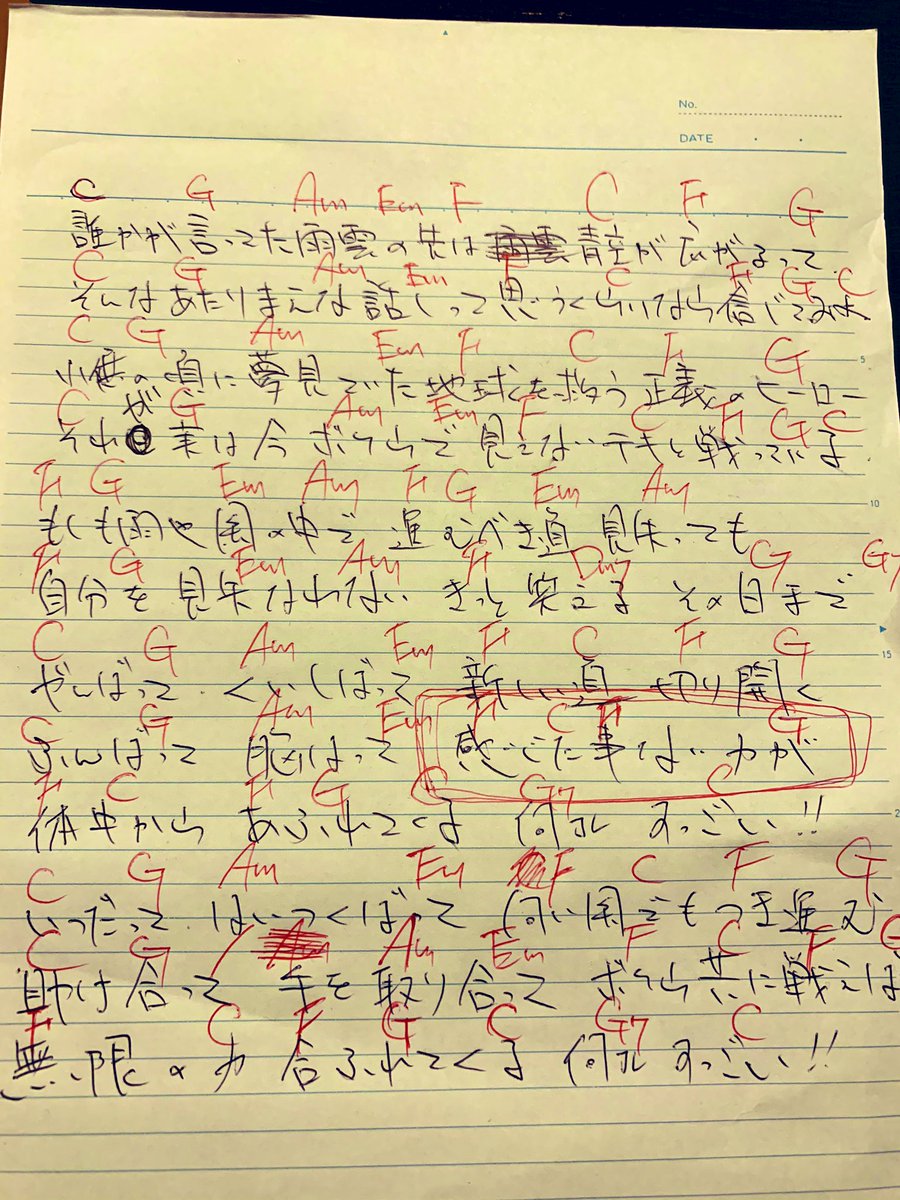 No.
DATE
C G Am Em F C F G
誰かが言ってた雨雲の先は 青空が広がるって
C G Am Em F C F G C
そんなあたりまえな話しって思うくらいなら信じてみよ
C G Am Em F C F G
小僧の頃に夢見てた地球を救う正義のヒーロー
C G Am Em F C F G C
それが実は今 ボクらで見えないテキと戦っている
5
F G Em Am F G Em Am
もしも雨や闇の中で 進むべき道 見失っても
10
F G Em Am F Dm7 G G7
自分を見失なわない きっと笑える その日まで
C G Am Em F C F G
がんばって くいしばって 新しい道 切り開く
15
C G Am Em F C F G
ふんばって 脳はって 感じた事ない力が
F C F G C G7 C
体中から あふれてくる 何コレ すっごい!!
2
C G Am Em F C F G
いつだって はいつくばって 何い闇でもつき進む
C G Am Em F C F G
助け合って 手を取り合って ボクら共に戦えば
F C F G C G7 C
無限の力 合ふれてくる 何コレ すっごい!!